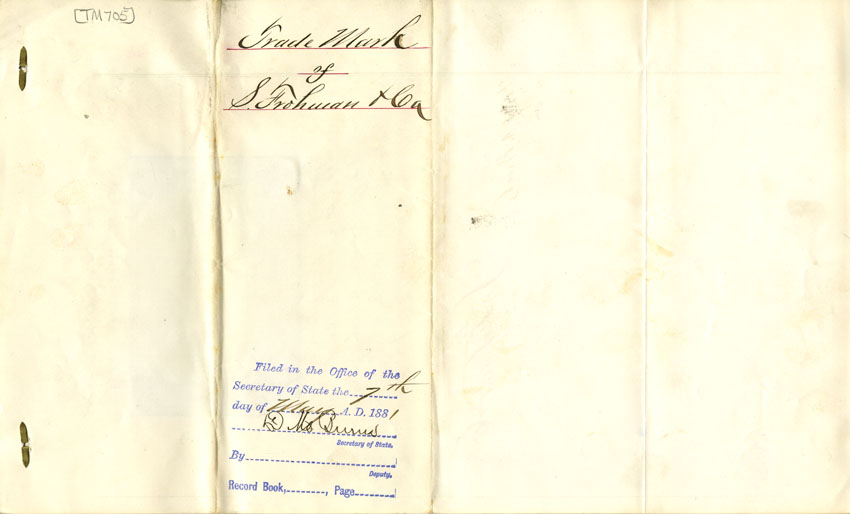 [TM705]
Trade Mark
of
S. Frohman & Co
Filed in the Office of the
Secretary of State the 7th
day of May A. D. 1881
D M Burns
Secretary of State.
By
Deputy.
Record Book, , Page